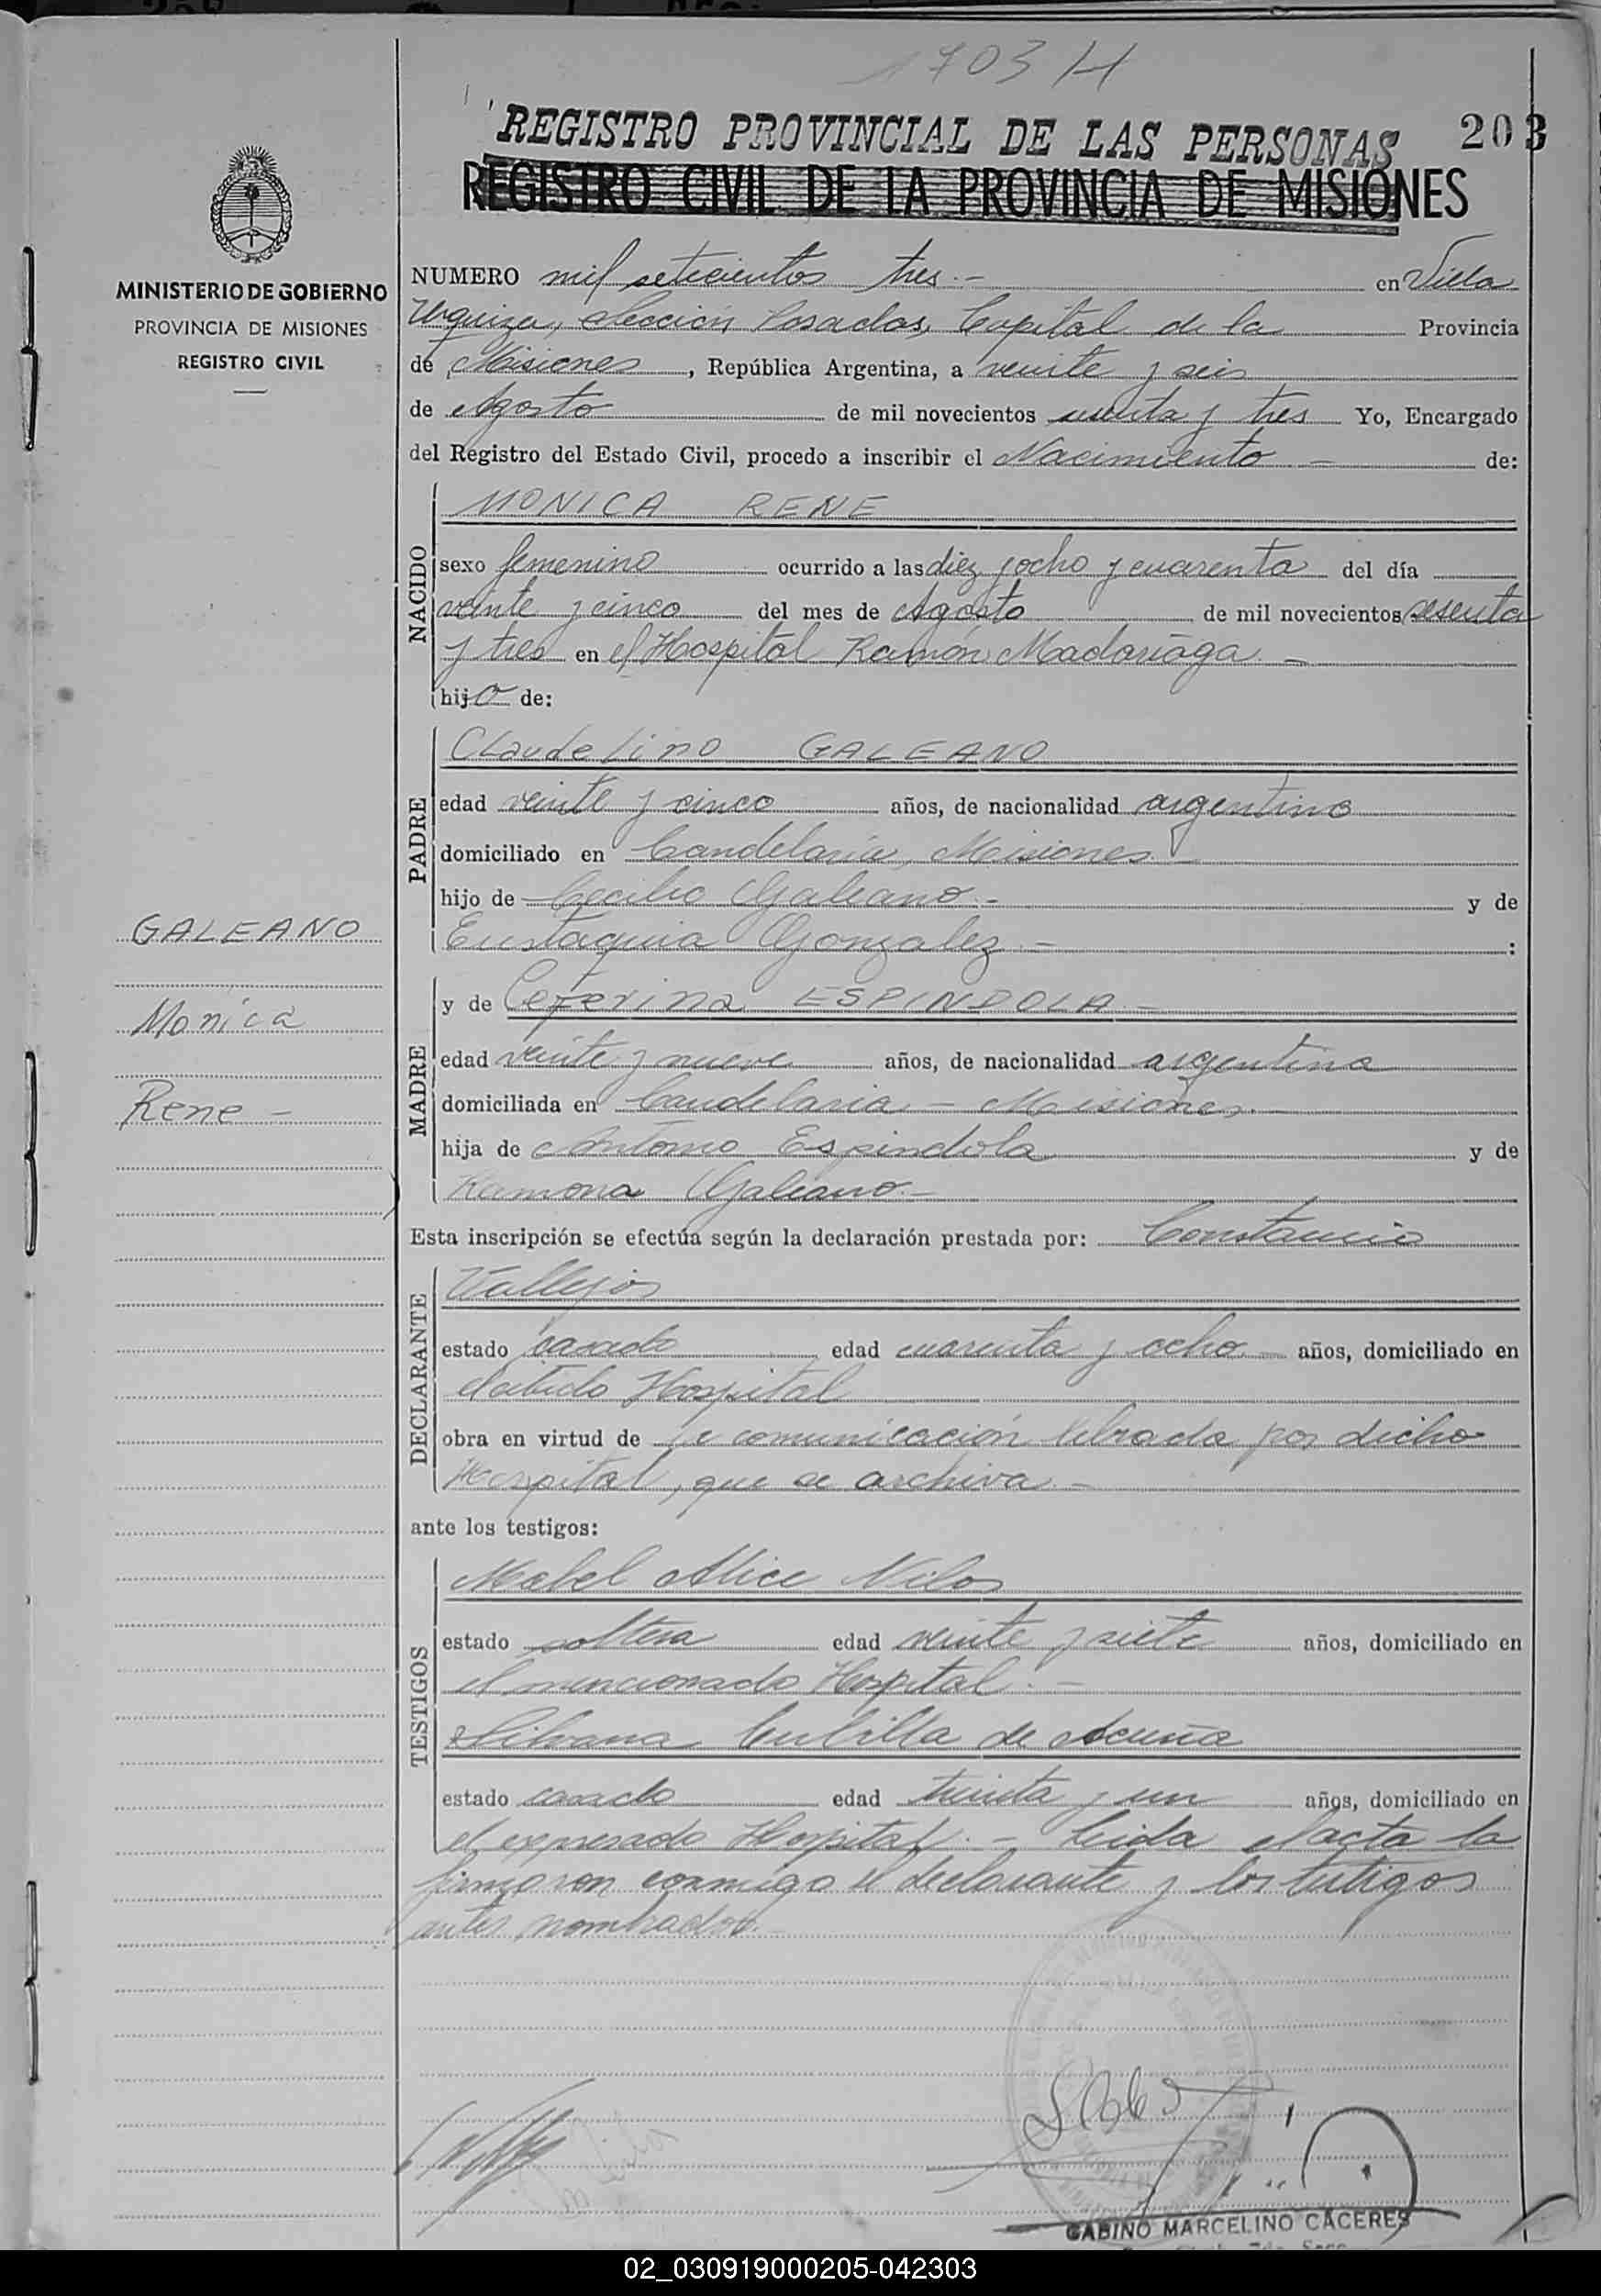 1703 H
203
REGISTRO PROVINCIAL DE LAS PERSONAS
REGISTRO CIVIL DE LA PROVINCIA DE MISIONES
MINISTERIO DE GOBIERNO
PROVINCIA DE MISIONES
REGISTRO CIVIL
NUMERO mil setecientos tres.- en Villa
Urquiza, sección Posadas, Capital de la Provincia
de Misiones, República Argentina, a veinte y seis
de Agosto de mil novecientos sesenta y tres Yo, Encargado
del Registro del Estado Civil, procedo a inscribir el Nacimiento - de:
NACIDO
MONICA RENE
sexo femenino ocurrido a las diez y ocho y cuarenta del día
veinte y cinco del mes de Agosto de mil novecientos sesenta
y tres en el Hospital Ramón Madariaga. -
hijo de:
PADRE
Claudelino GALEANO
edad veinte y cinco años, de nacionalidad argentino
domiciliado en Candelaria, Misiones. -
hijo de Cecilio Galeano. - y de
Eustaquia Gonzalez. - :
GALEANO
Monica
Rene -
MADRE
y de Ceferina ESPINDOLA -
edad veinte y nueve años, de nacionalidad argentina
domiciliada en Candelaria - Misiones. -
hija de Antonio Espindola y de
Ramona Galeano. -
Esta inscripción se efectúa según la declaración prestada por: Constancio
DECLARANTE
Vallejos
estado casado edad cuarenta y ocho años, domiciliado en
el citado Hospital
obra en virtud de la comunicación librada por dicho
Hospital, que se archiva. -
ante los testigos:
TESTIGOS
Mabel Alice
estado soltera edad veinte y siete años, domiciliado en
el mencionado Hospital. -
de Acuña
estado casado edad treinta y un años, domiciliado en
el expresado Hospital. - Leida el acta la
firmaron conmigo el declarante y los testigos
antes nombrados. -
GABINO MARCELINO CACERES
02_030919000205-042303